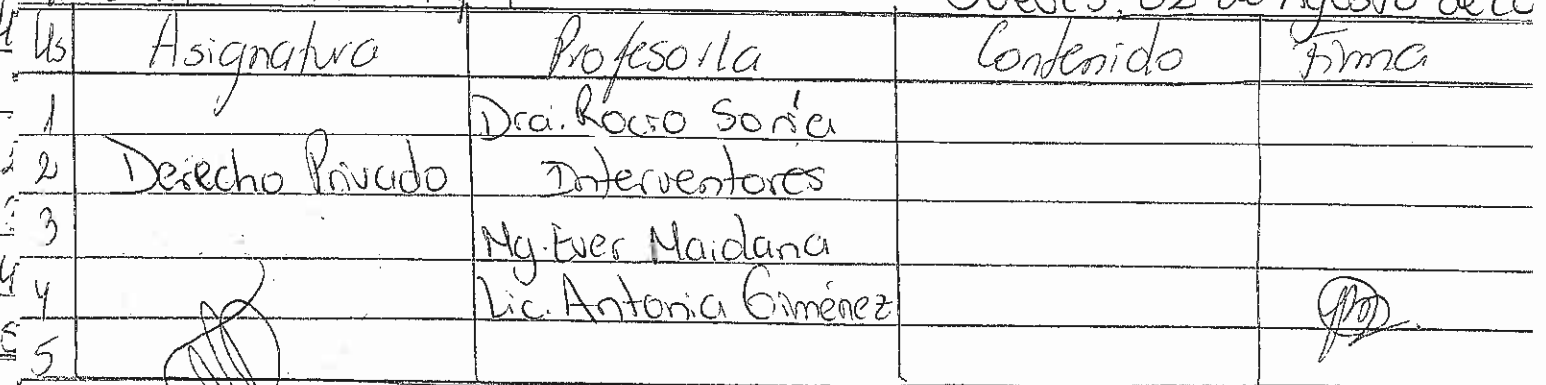 Jueves, 02 de Agosto de
Hs Asignatura Profesor/la Contenido Firma
1 Dra. Rocío Soria
2 Derecho Privado Interventores
3 Mg. Ever Maidana
4 Lic. Antonia Giménez
5